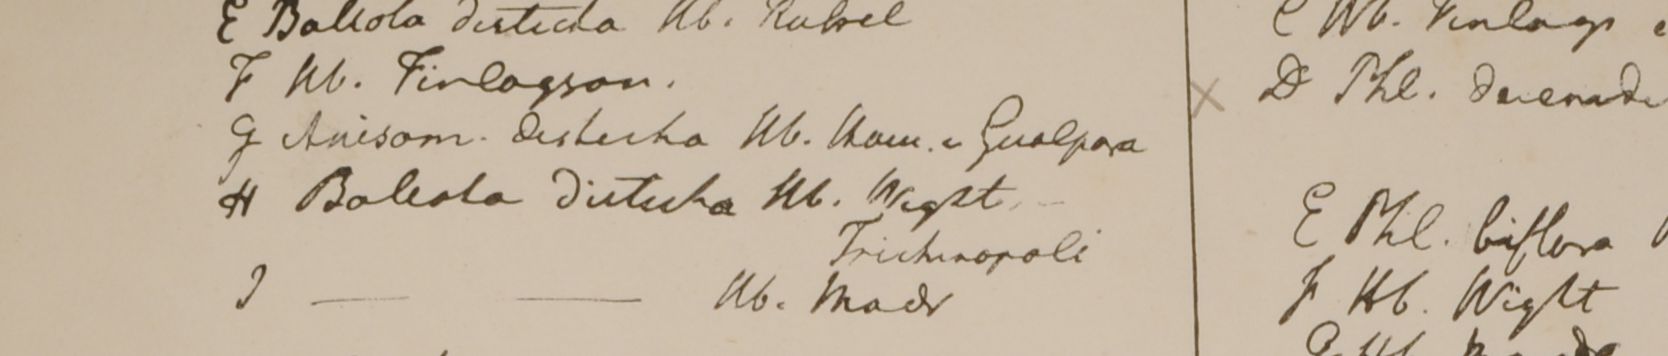 E Ballota disticha Hb. Rubel
F Hb. Finlayson.
G Anisom. disticha Hb. Ham. e Gualpara
H Ballota disticha Hb. Wight
Trichinopoli
I — — Hb. Madr
C Hb. Finlays
D Phl.
E Phl. biflora
F Hb. Wight
G Hb.